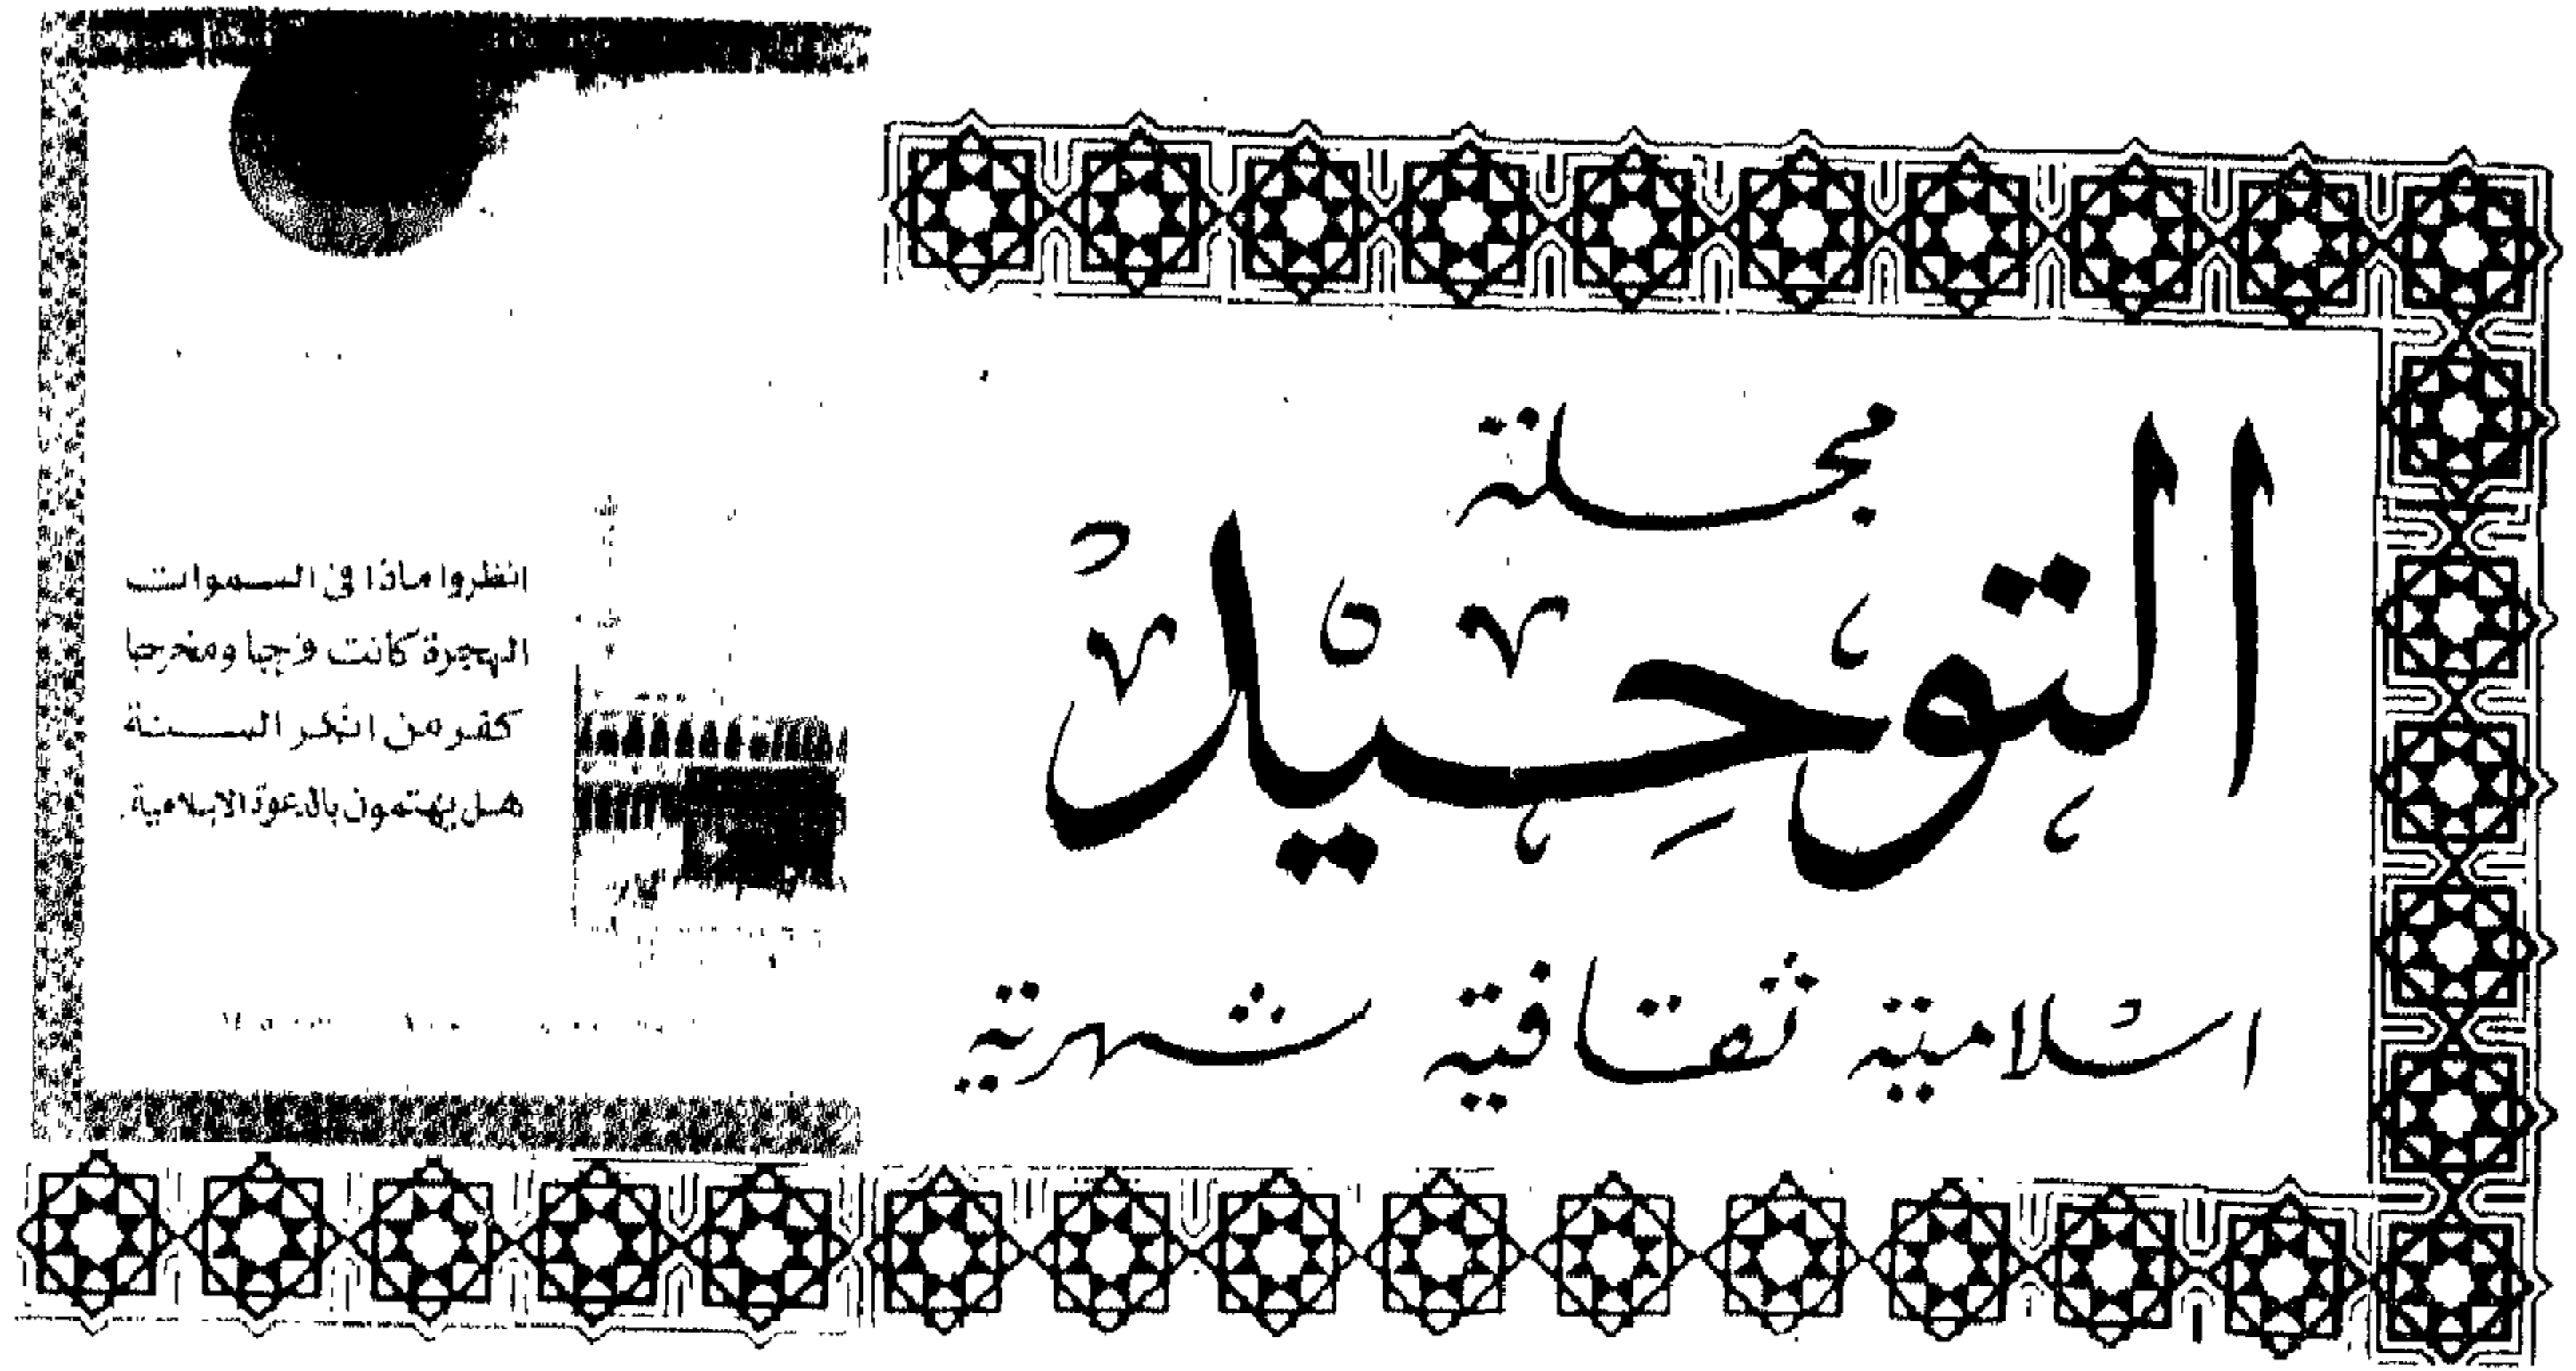 مجلة
التوحيد
اسلامية ثقافية شهرية
انظروا ماذا في السموات
الهجرة كانت فرجا ومخرجا
كفر من انكر السنة
هل يهتمون بالدعوة الاسلامية